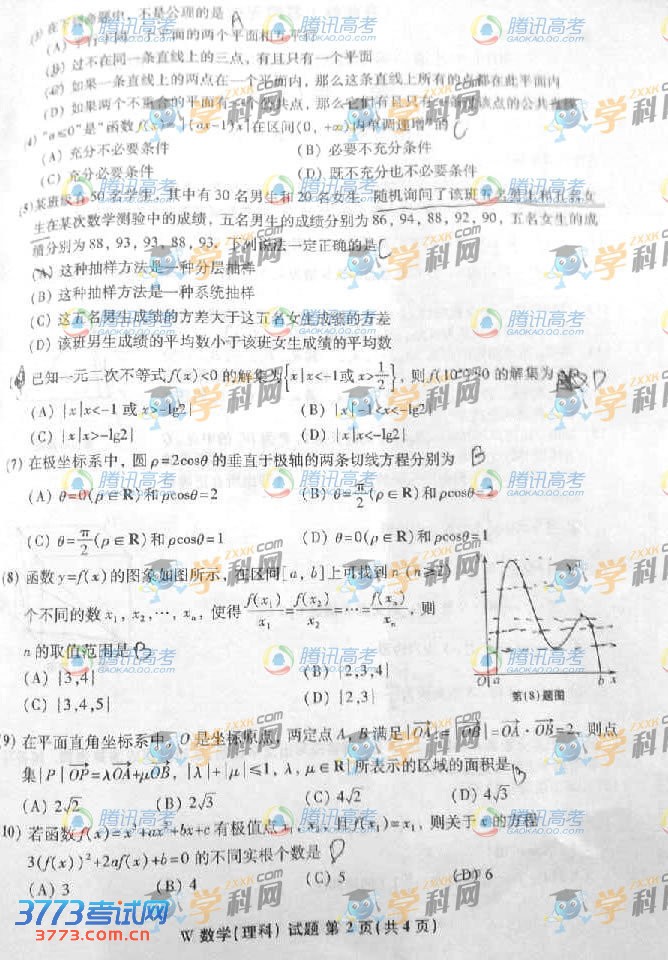 (3) 在下列命题中，不是公理的是 A
(A) 平行于同一个平面的两个平面相互平行
(B) 过不在同一条直线上的三点，有且只有一个平面
(C) 如果一条直线上的两点在一个平面内，那么这条直线上所有的点都在此平面内
(D) 如果两个不重合的平面有一个公共点，那么它们有且只有一条过该点的公共直线
(4) "a≤0"是"函数f(x)=|(ax-1)x|在区间(0，+∞)内单调递增"的 C
(A) 充分不必要条件 (B) 必要不充分条件
(C) 充分必要条件 (D) 既不充分也不必要条件
(5) 某班级有50名学生，其中有30名男生和20名女生，随机询问了该班五名男生和五名女
生在某次数学测验中的成绩，五名男生的成绩分别为86，94，88，92，90，五名女生的成
绩分别为88，93，93，88，93．下列说法一定正确的是 C
(A) 这种抽样方法是一种分层抽样
(B) 这种抽样方法是一种系统抽样
(C) 这五名男生成绩的方差大于这五名女生成绩的方差
(D) 该班男生成绩的平均数小于该班女生成绩的平均数
已知一元二次不等式f(x)<0的解集为{x|x<-1或x>1/2}，则f(10ˣ)>0的解集为 D
(A) {x|x<-1或x>-lg2} (B) {x|-1<x<-lg2}
(C) {x|x>-lg2} (D) {x|x<-lg2}
(7) 在极坐标系中，圆ρ=2cosθ的垂直于极轴的两条切线方程分别为 B
(A) θ=0(ρ∈R)和ρcosθ=2 (B) θ=π/2(ρ∈R)和ρcosθ=2
(C) θ=π/2(ρ∈R)和ρcosθ=1 (D) θ=0(ρ∈R)和ρcosθ=1
(8) 函数y=f(x)的图象如图所示，在区间[a，b]上可找到n(n≥2)
个不同的数x₁，x₂，…，xₙ，使得f(x₁)/x₁=f(x₂)/x₂=…=f(xₙ)/xₙ，则
n的取值范围是 B
(A) {3,4} (B) {2,3,4}
(C) {3,4,5} (D) {2,3}
O a b x
第(8)题图
(9) 在平面直角坐标系中，O是坐标原点，两定点A，B满足|OA|=|OB|=OA·OB=2，则点
集{P|OP=λOA+μOB，|λ|+|μ|≤1，λ，μ∈R}所表示的区域的面积是 D
(A) 2√2 (B) 2√3 (C) 4√2 (D) 4√3
(10) 若函数f(x)=x³+ax²+bx+c有极值点x₁，x₂，且f(x₁)=x₁，则关于x的方程
3(f(x))²+2af(x)+b=0的不同实根个数是
(A) 3 (B) 4 (C) 5 (D) 6
W 数学(理科) 试题 第2页(共4页)
3773考试网
3773.com.cn
腾讯高考
GAOKAO.QQ.COM
学科网
ZXXK.COM